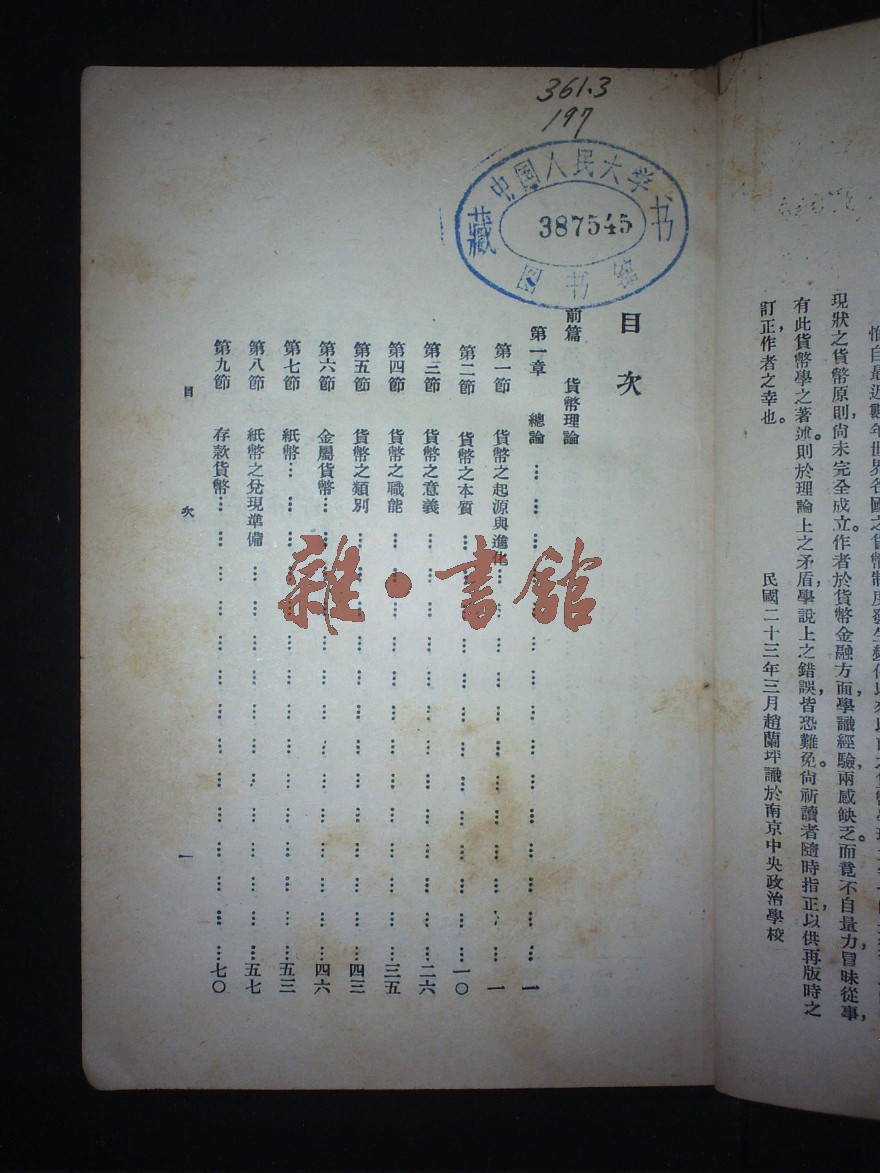 現狀之貨幣原則,尚未完全成立。作者於貨幣金融方面,學識經驗,兩感缺乏。而竟不自量力,冒昧從事,
有此貨幣學之著述。則於理論上之矛盾,學說上之錯誤,皆恐難免。尙祈讀者隨時指正,以供再版時之
訂正,作者之幸也。
民國二十三年三月趙蘭坪識於南京中央政治學校
361.3
197
中国人民大学
藏
书
387545
图书馆
目次
前篇 貨幣理論
第一章 總論……一
第一節 貨幣之起源與進化……一
第二節 貨幣之本質……一〇
第三節 貨幣之意義……二六
第四節 貨幣之職能……三五
第五節 貨幣之類別……四三
第六節 金屬貨幣……四六
第七節 紙幣……五三
第八節 紙幣之兌現準備……五七
第九節 存款貨幣……七〇
目次
一
雜·書館